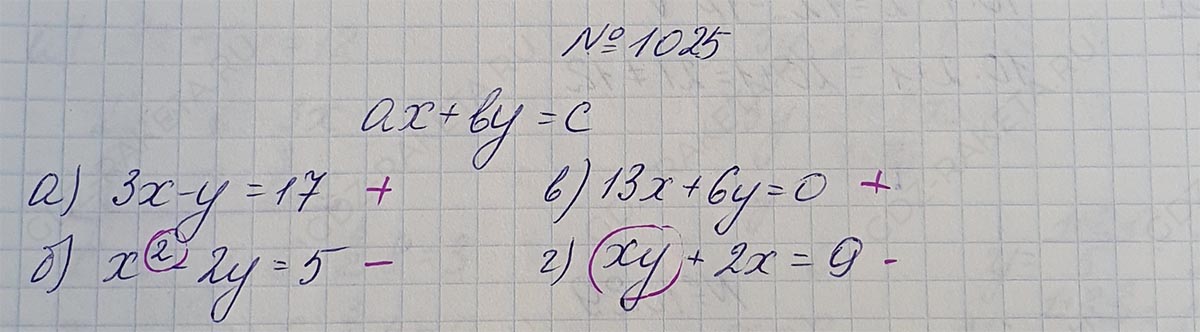 № 1025
ax + by = c
а) 3x - y = 17 + в) 13x + 6y = 0 +
б) x² - 2y = 5 - г) xy + 2x = 9 -